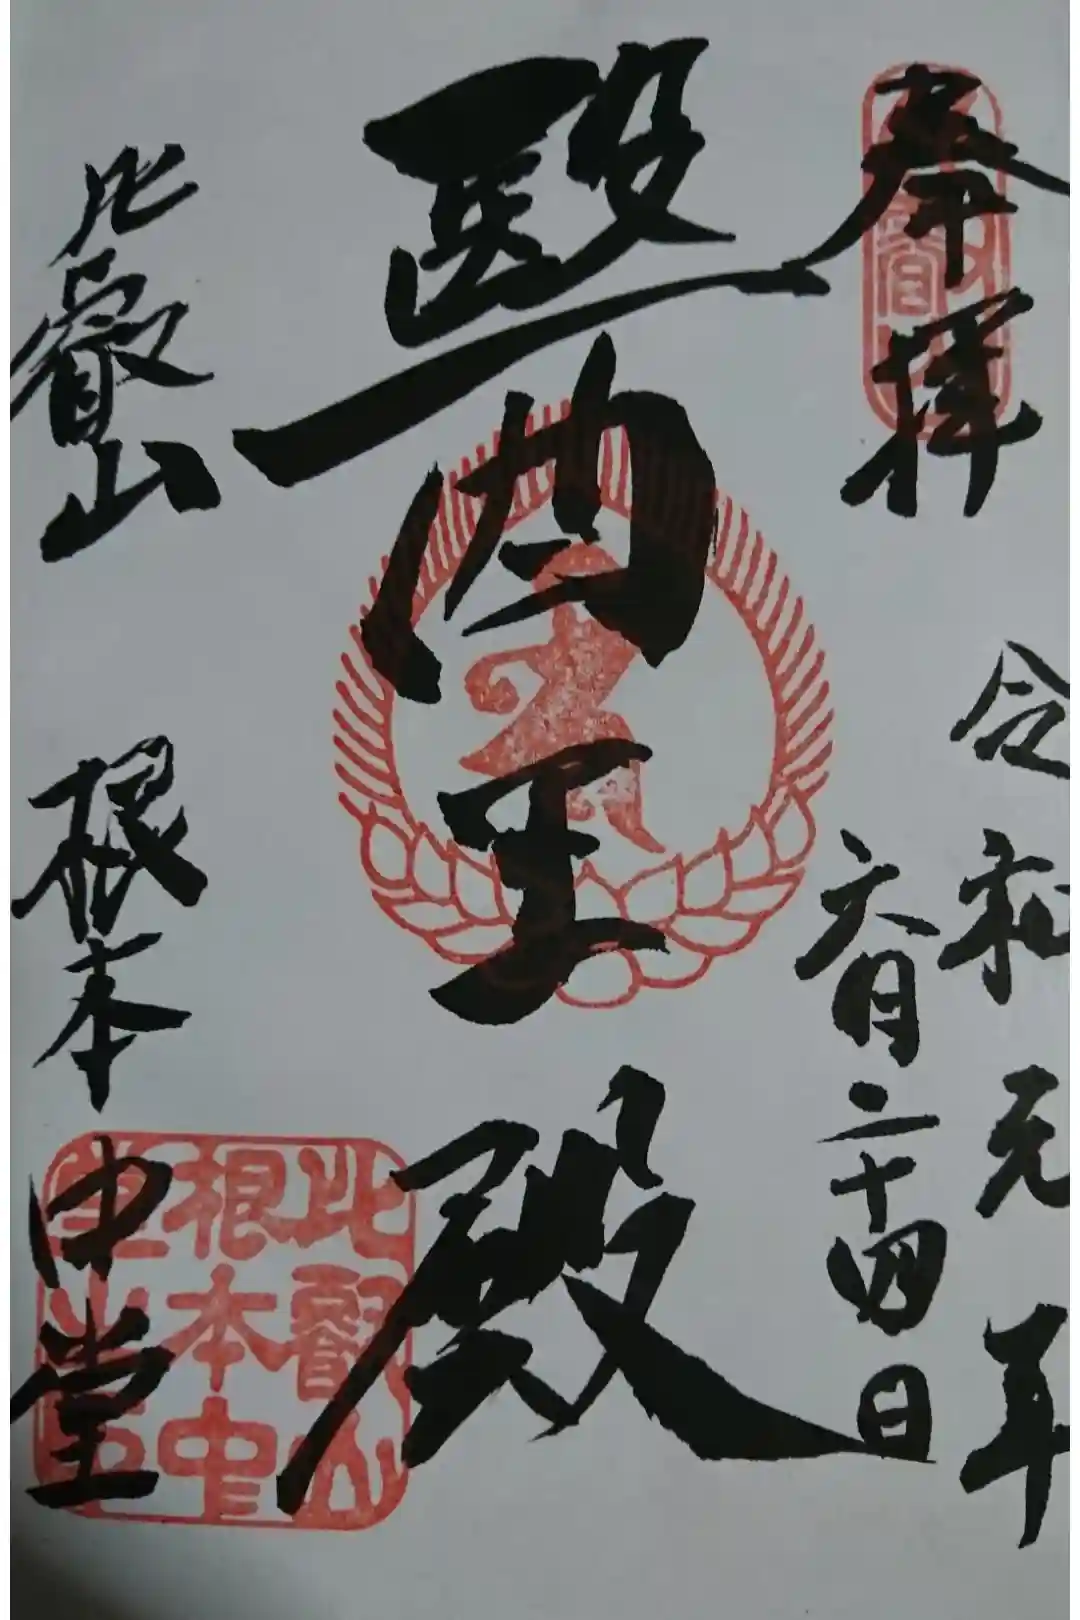 奉拝
令和元年
六月二十四日
醫王殿
比叡山 根本中堂
比叡山
根本中
堂之印